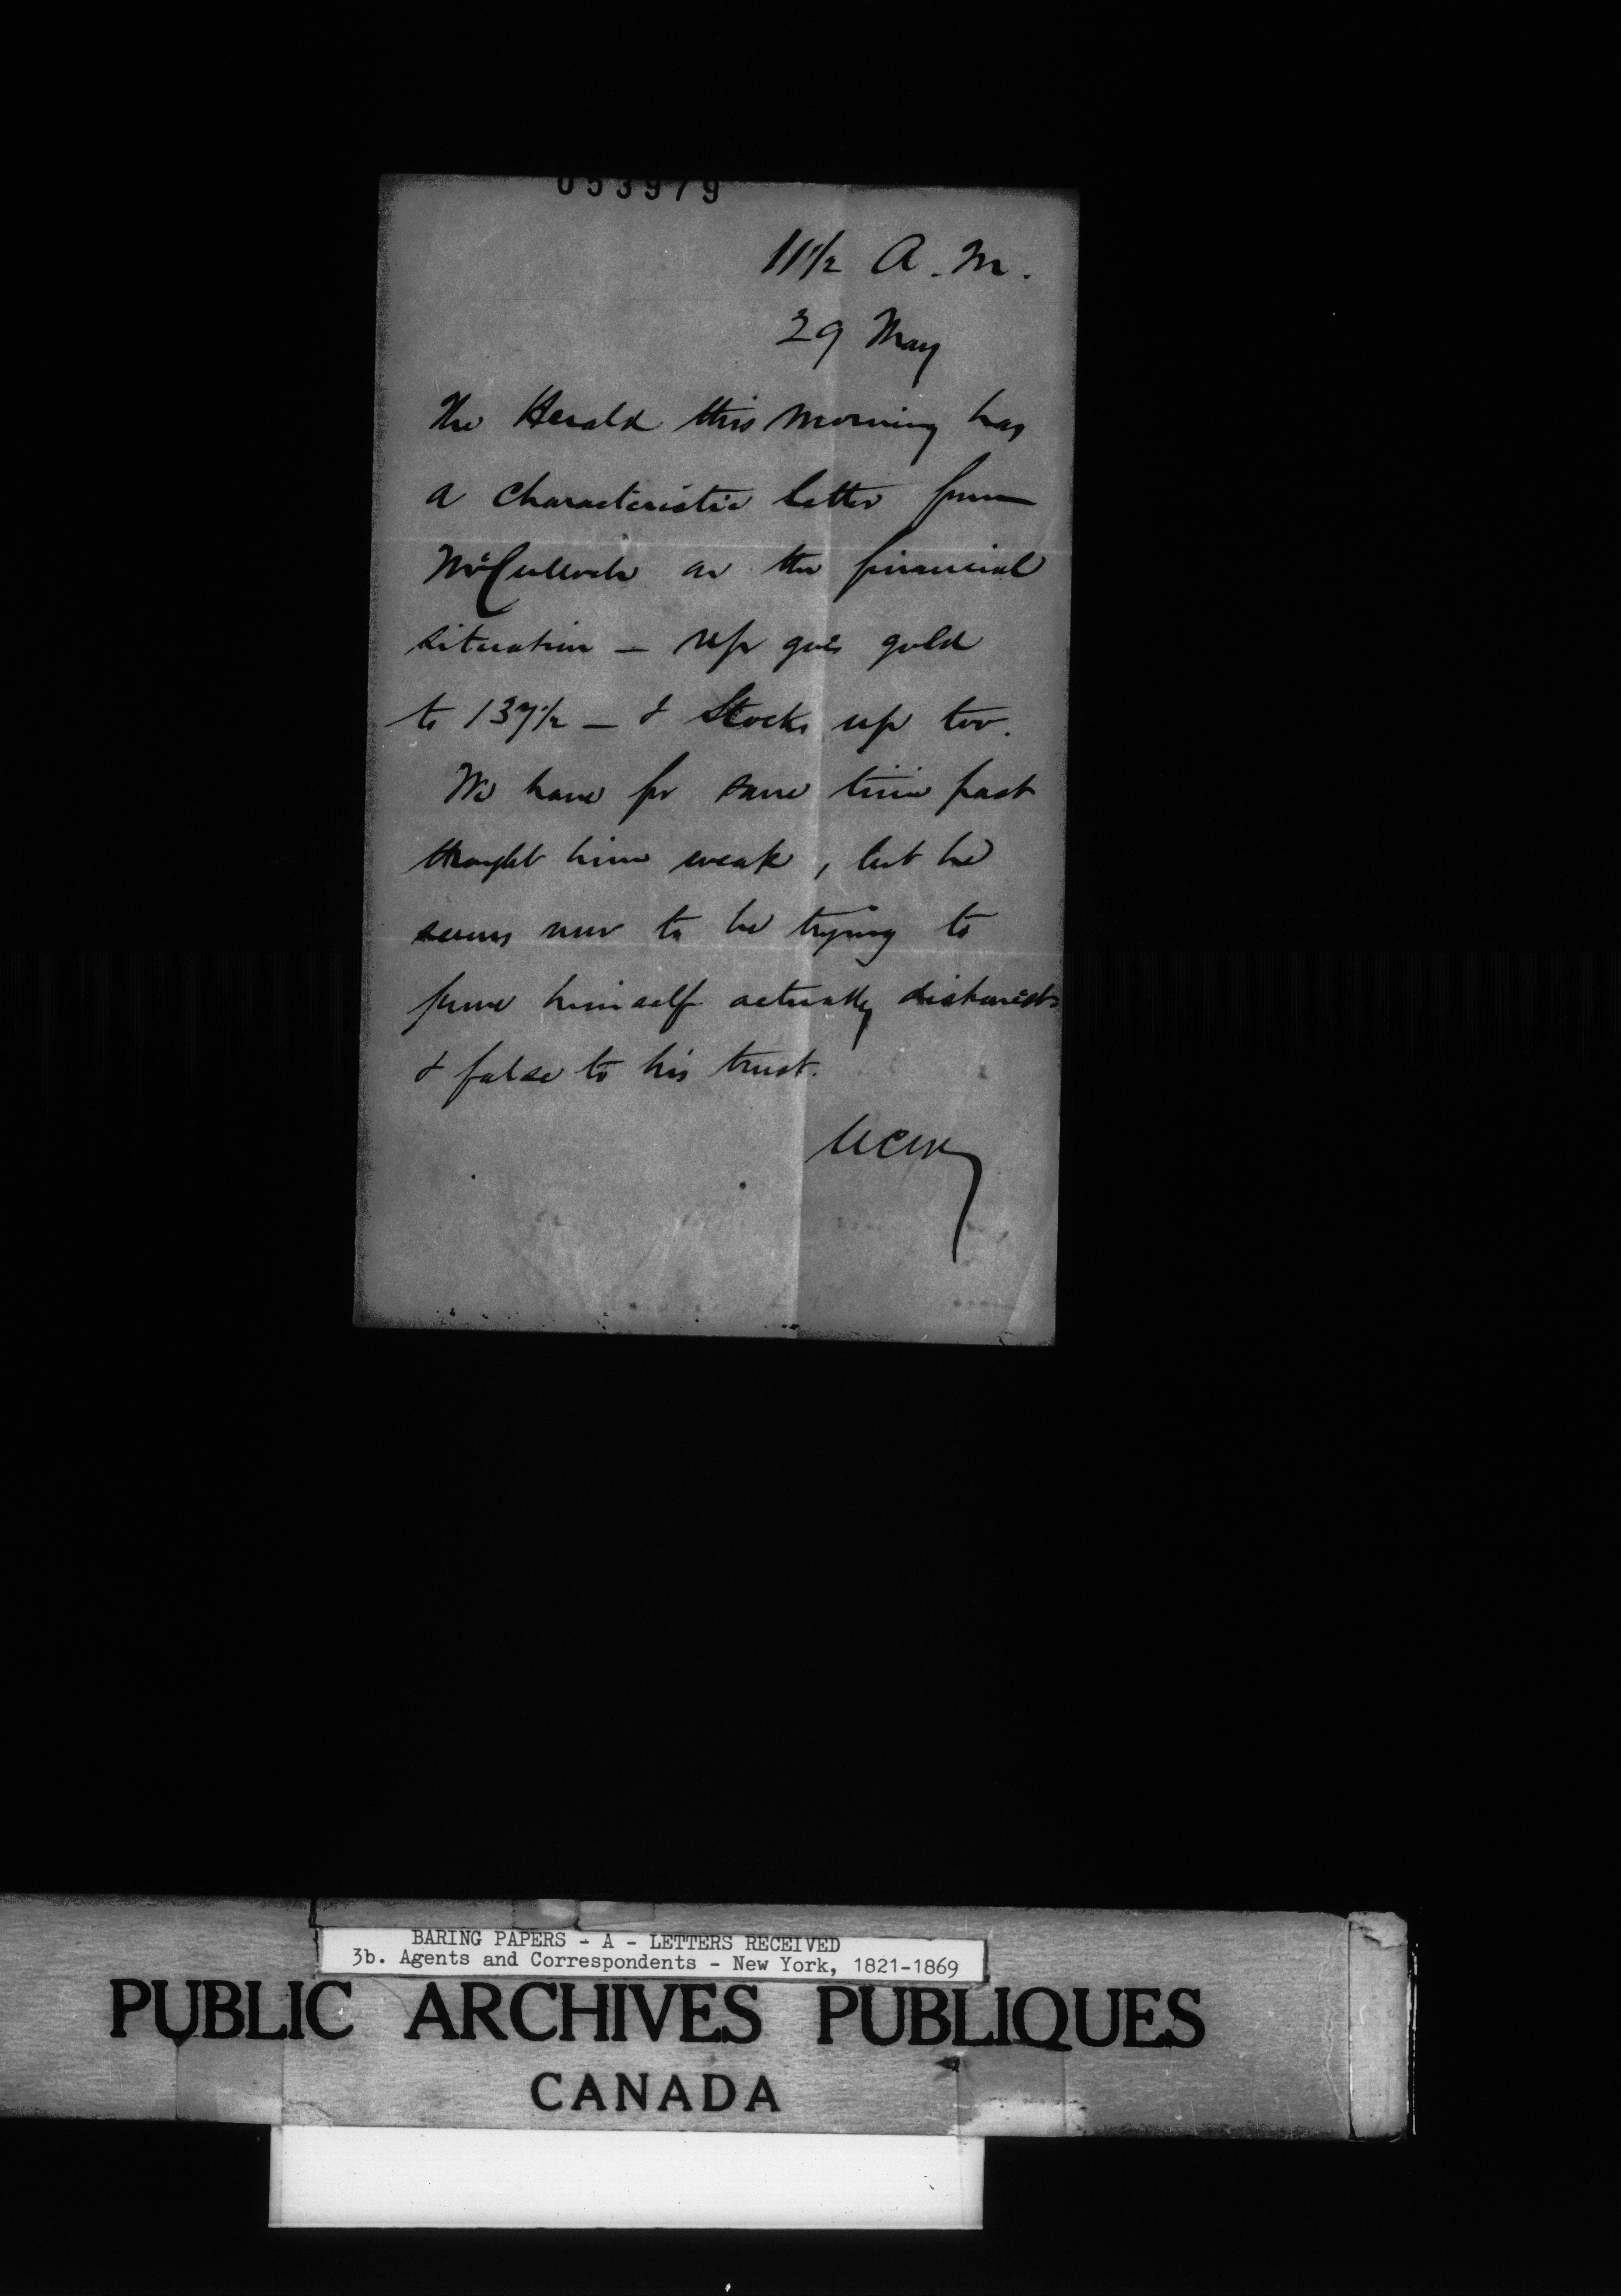 053979
11½ A.M.
29 May
The Herald this morning has
a characteristic letter from
McCulloch on the financial
situation – up goes gold
to 137½ – & Stocks up too.
We have for some time past
thought him weak, but he
seems now to be trying to
prove himself actually dishonest
& false to his trust.
BARING PAPERS - A - LETTERS RECEIVED
3b. Agents and Correspondents - New York, 1821-1869
PUBLIC ARCHIVES PUBLIQUES
CANADA